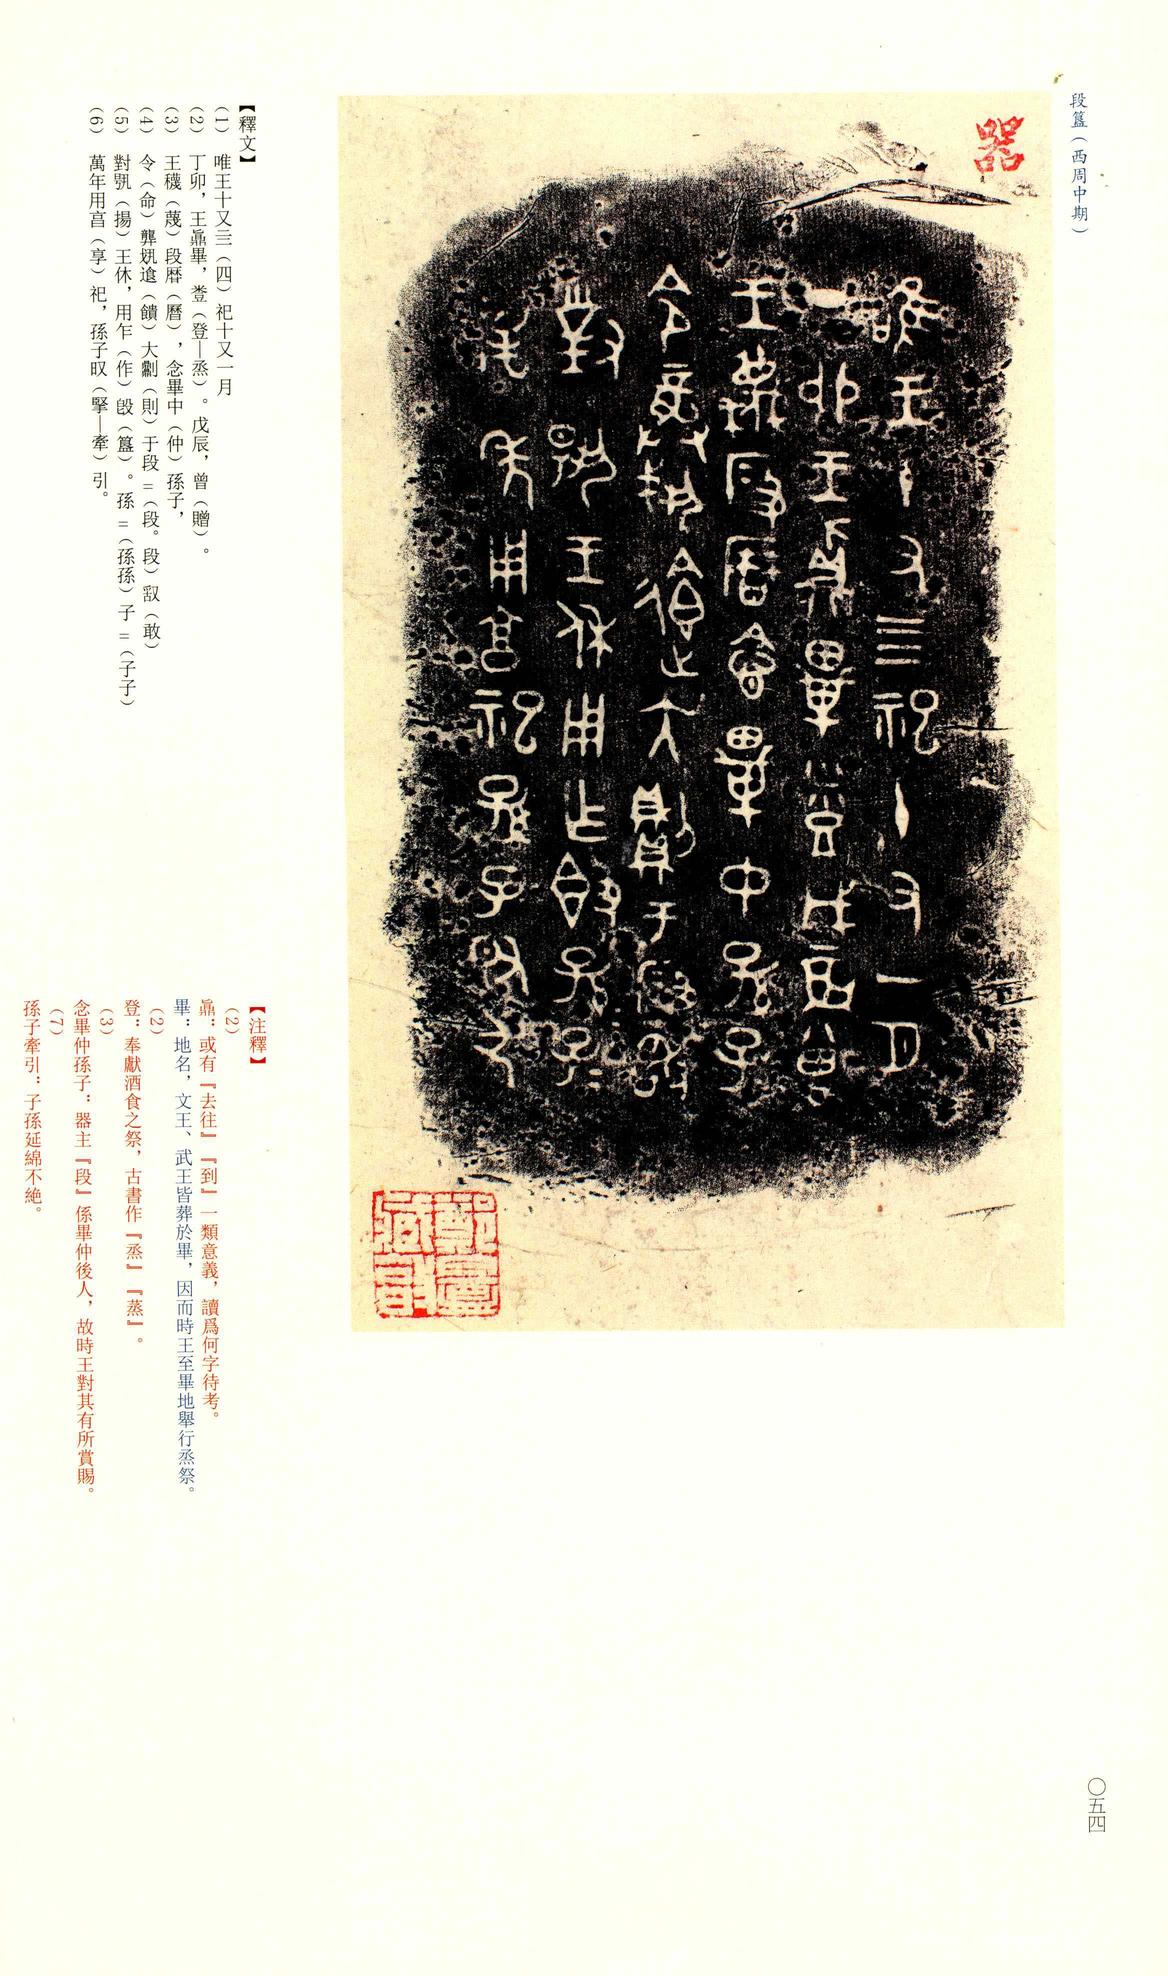 段簋（西周中期）
器
【釋文】
(1) 唯王十又三（四）祀十又一月
(2) 丁卯，王鼎畢，登（登—烝）。戊辰，曾（贈）。
(3) 王穖（蔑）段曆（曆），念畢中（仲）孫子，
(4) 令（命）龏𡚬遉（饋）大劘（則）于段=（段。段）叙（敢）
(5) 對𩛥（揚）王休，用乍（作）𣪘（簋）。孫=（孫孫）子=（子子）
(6) 萬年用亯（享）祀，孫子㕞（掔—牽）引。
【注釋】
(2)
鼎：或有『去往』『到』一類意義，讀爲何字待考。
畢：地名，文王、武王皆葬於畢，因而時王至畢地舉行烝祭。
(2)
登：奉獻酒食之祭，古書作『烝』『蒸』。
(3)
念畢仲孫子：器主『段』係畢仲後人，故時王對其有所賞賜。
(7)
孫子牽引：子孫延綿不絶。
〇五四